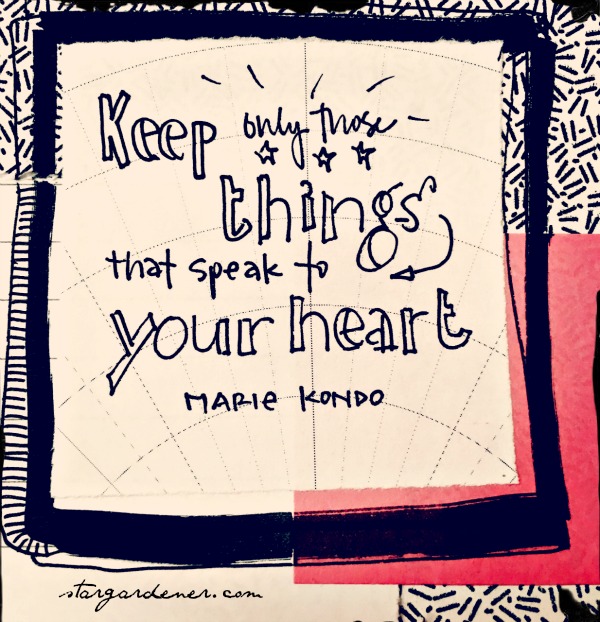 Keep only those
things
that speak to
your heart
MARIE KONDO
stargardener.com